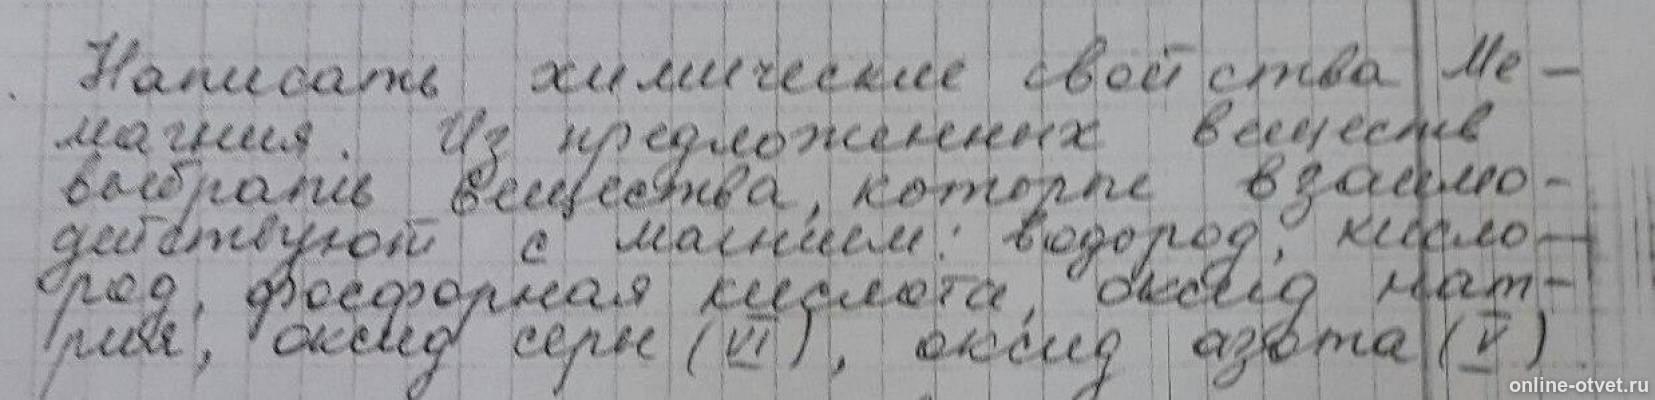 Написать химические свойства Ме-
магния. Из предложенных веществ
выбрать вещества, которые взаимо-
действуют с магнием: водород, кисло-
род, фосфорная кислота, оксид нат-
рия, оксид серы (VI), оксид азота (V).
online-otvet.ru